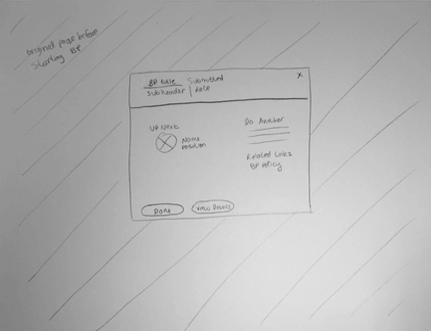 original page before
starting BP
BP title Submitted X
Subheader | Date
Up Next
Name
Position
Do Another
Related Links
BP Policy
Done
View Details